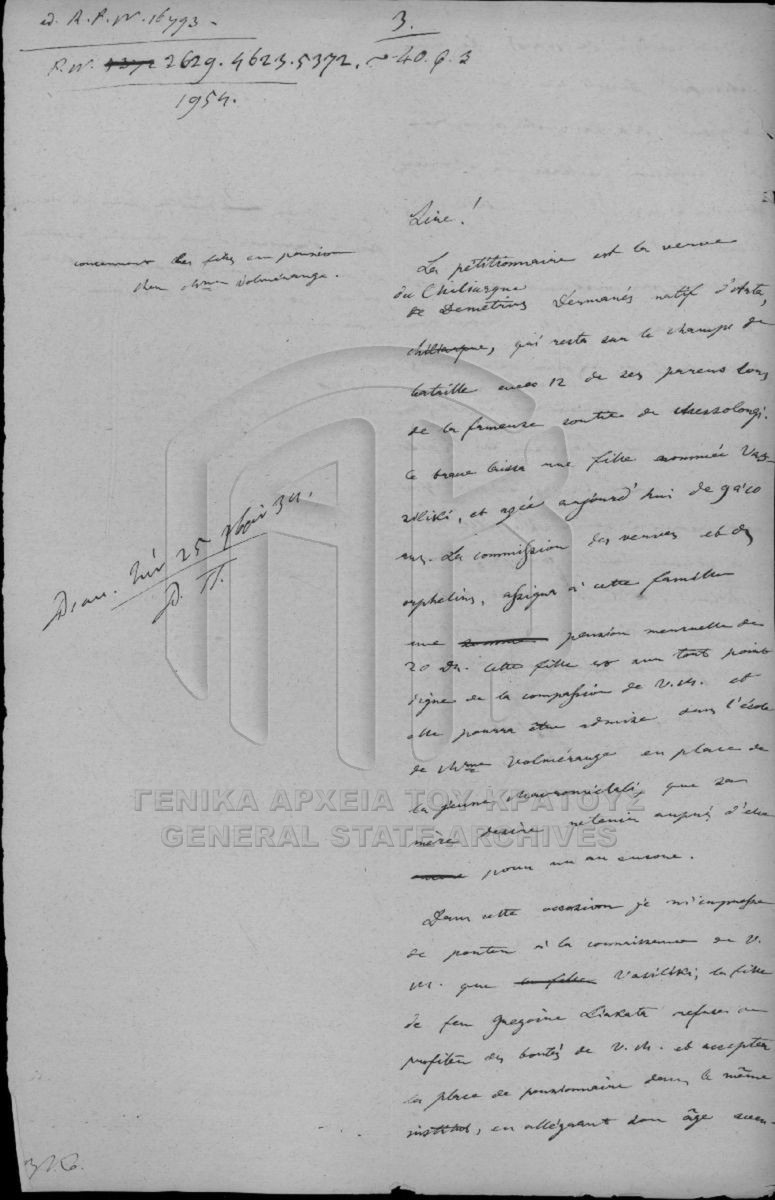 ad. R. P. N. 16793 -
3.
P. N. 2629. 4623. 5372. 40. 3
1954.
concernant les filles en pension
chez Mme Volmérange.
Sire!
La pétitionnaire est la veuve
du Chiliarque
de Demétrius Dermanés natif d'Arta,
chiliarque, qui resta sur le champs de
bataille avec 12 de ses parens lors
de la fameuse sortie de Messolongi.
Ce brave laissa une fille nommée Vas-
siliki, et agée aujourd'hui de 9 à 10
ans. La commission des veuves et des
orphelins, assigna à cette famille
une pension mensuelle de
20 Dr. Cette fille est en tout point
digne de la compassion de V. M. et
elle pourra être admise dans l'école
de Mme Volmérange en place de
la jeune Mavromichali, que sa
mère desire retenir auprès d'elle
pour un an encore.
Dans cette occasion je m'empresse
de porter à la connaissance de V.
M. que la fille Vasiliki, la fille
de feu Gregoire Liakata refuse de
profiter des bontés de V. M. et accepter
la place de pensionnaire dans le même
institut, en alléguant son âge avan-
25
Δ. Π.
ΓΕΝΙΚΑ ΑΡΧΕΙΑ ΤΟΥ ΚΡΑΤΟΥΣ
GENERAL STATE ARCHIVES